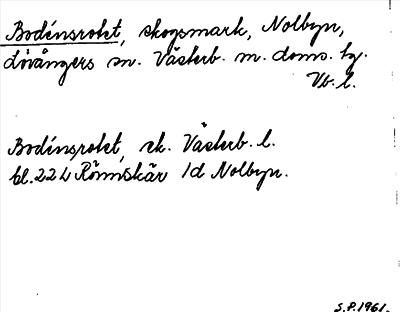 Bodénsrotet, skogsmark, Nolbyn,
Lövångers sn. Västerb. m. doms. bg.
Vb. l.
Bodénsrotet, ek. Västerb. l.
bl. 22 L Rönnskär 1d Nolbyn.
S.P. 1961.